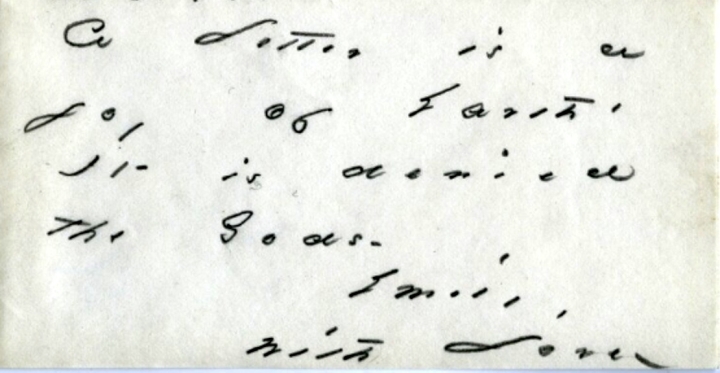 A Letter is a
joy of Earth -
It is denied
the Gods -
Emily,
with love -